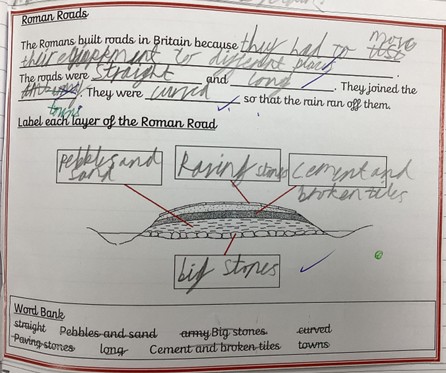 Roman Roads
The Romans built roads in Britain because they had to move
their equipment to different places.
The roads were straight and long. They joined the
towns. They were curved so that the rain ran off them.
Label each layer of the Roman Road
Pebbles and sand
Paving stones
Cement and broken tiles
big stones
Word Bank
straight Pebbles and sand army Big stones curved
Paving stones long Cement and broken tiles towns